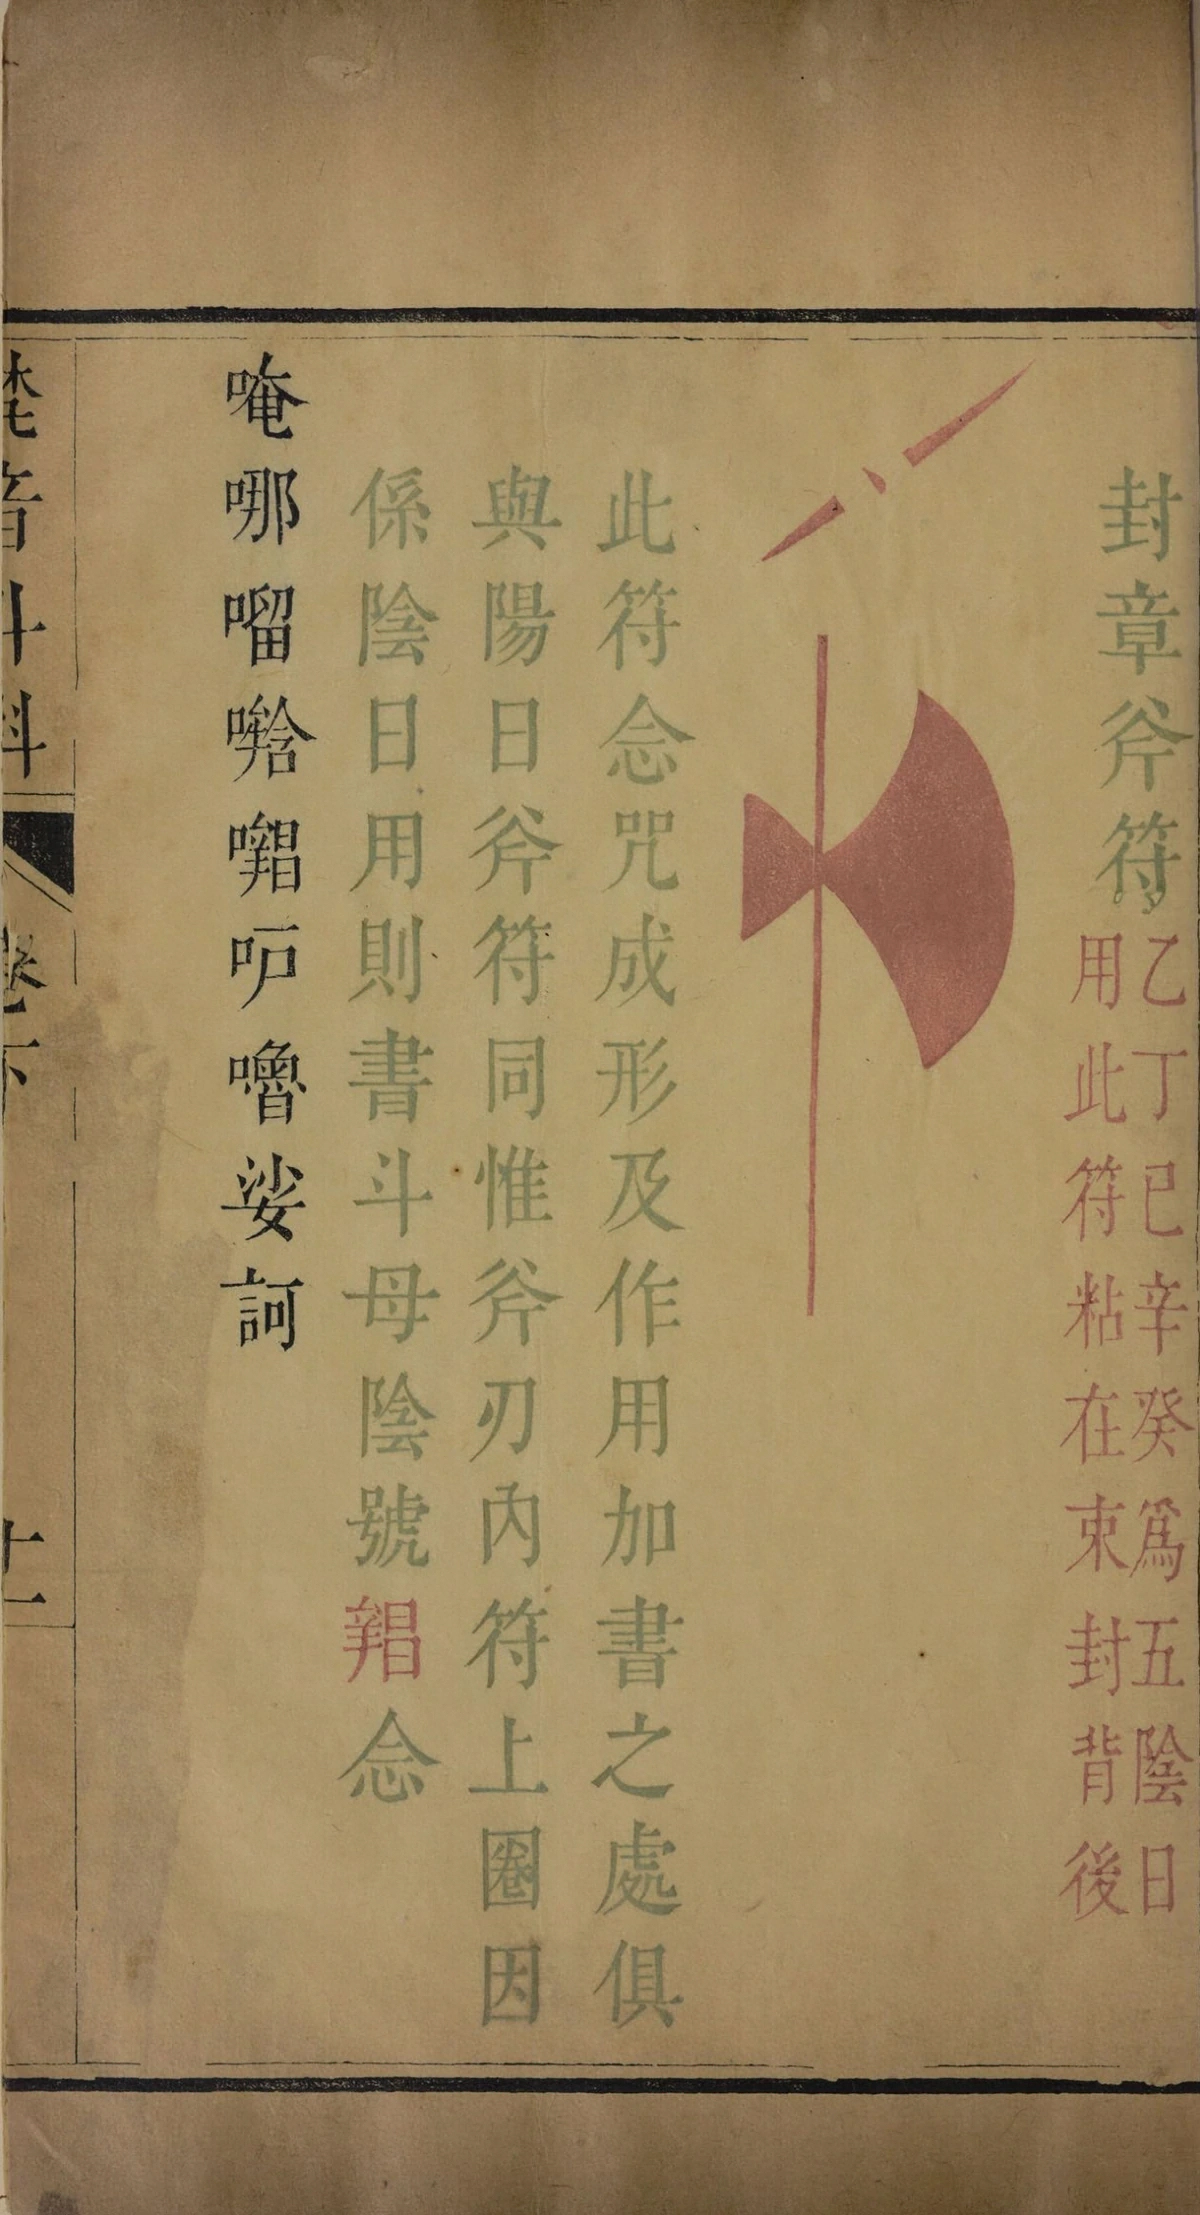 封章斧符
乙丁已辛癸為五陰日
用此符粘在束封背後
此符念咒成形及作用加書之處俱
與陽日斧符同惟斧刃內符上圈因
係陰日用則書斗母陰號念
唵哪𠺕娑訶
梵音斗科
卷下
十一